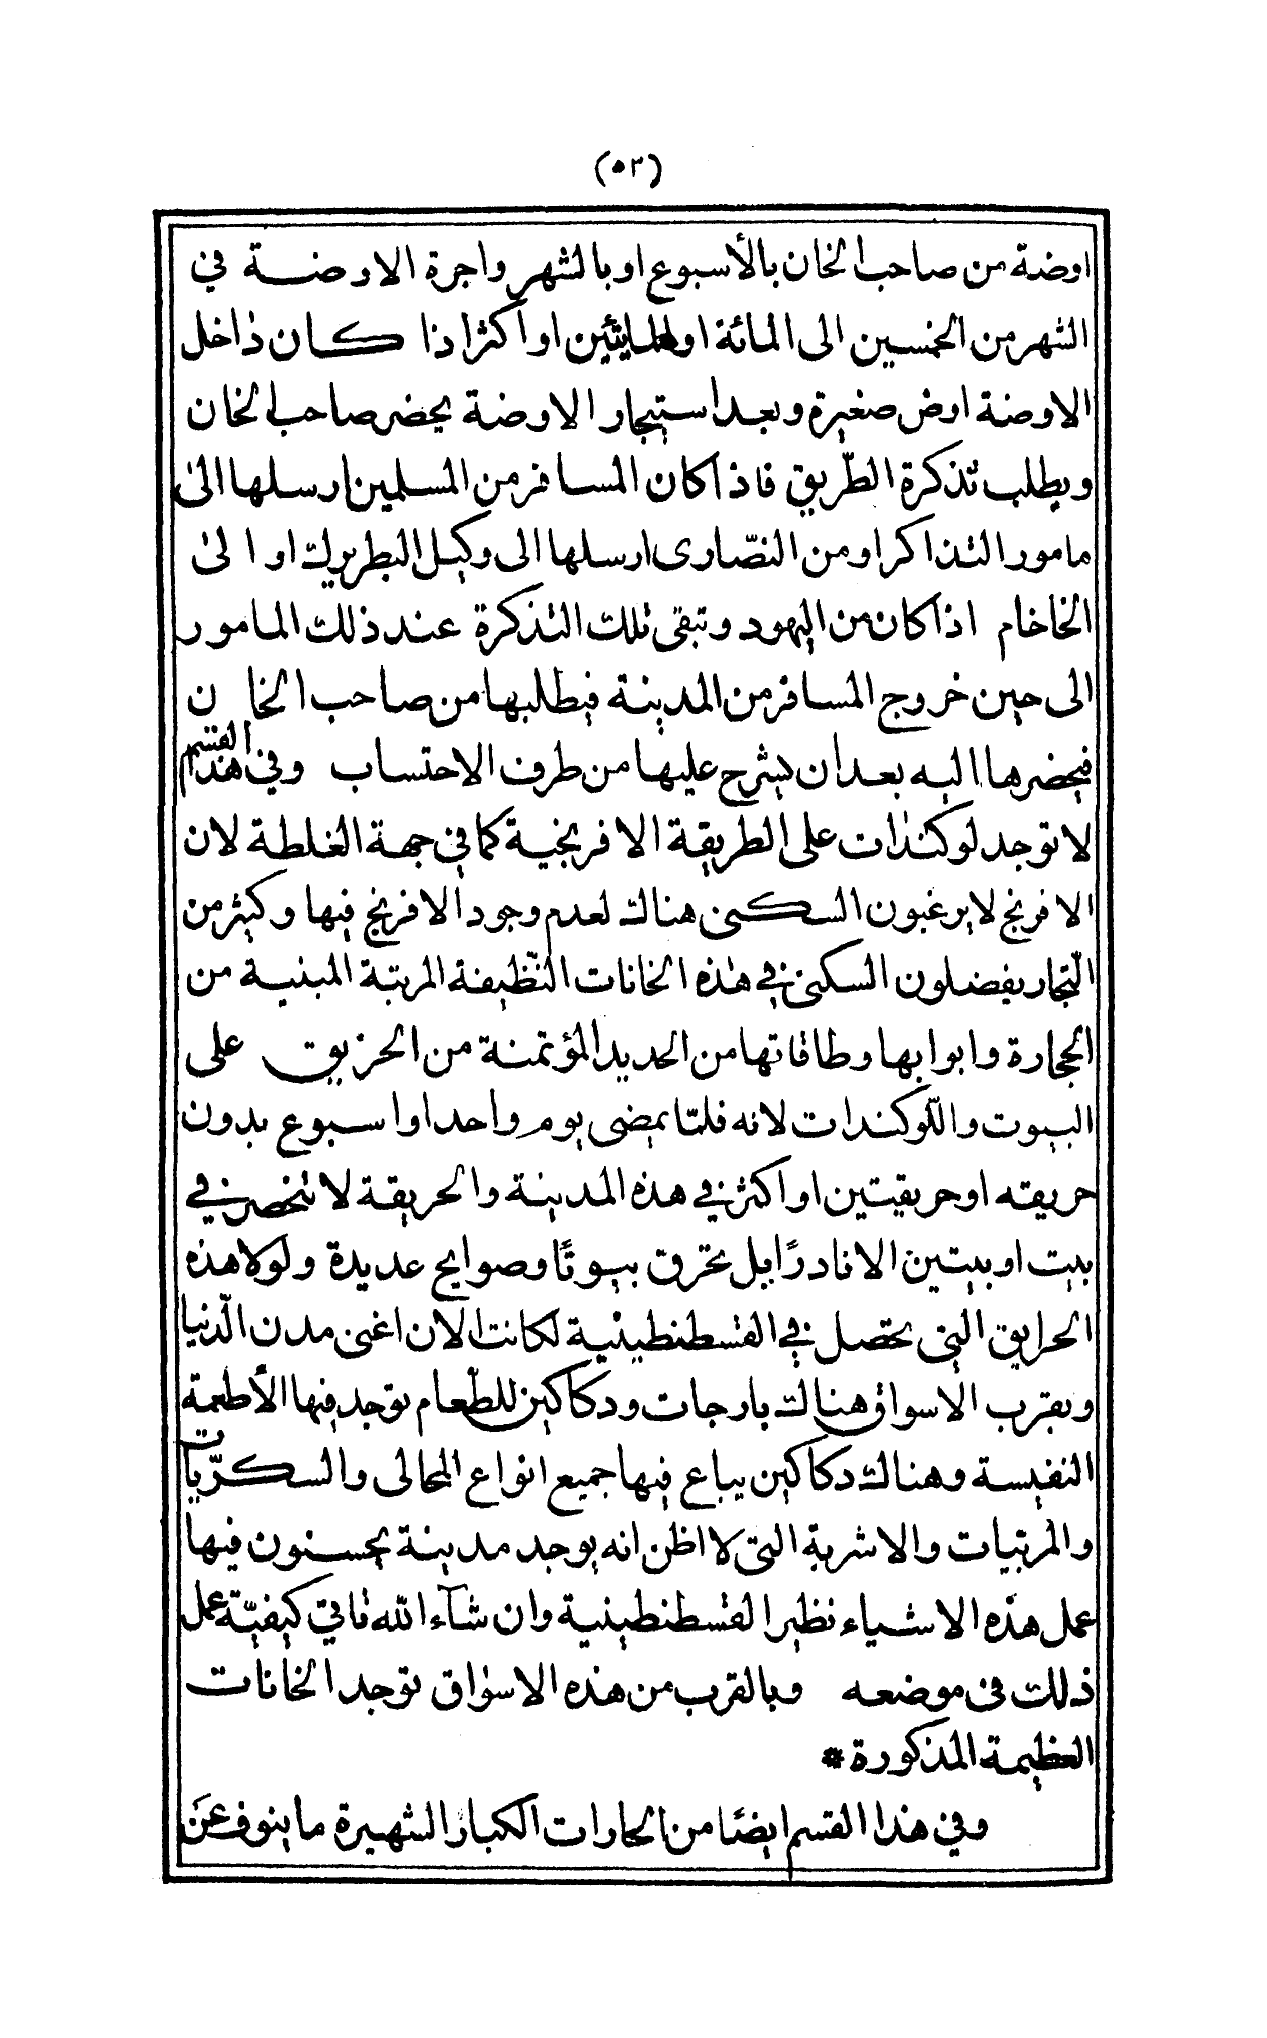 (٥٣)
اوضة من صاحب الخان بالأسبوع او بالشهر واجرة الاوضة في
الشهر من الخمسين الى المائة او المايتين او اكثر اذا كان داخل
الاوضة اوض صغيرة وبعد استيجار الاوضة يحضر صاحب الخان
ويطلب تذكرة الطّريق فاذا كان المسافر من المسلمين ارسلها الى
مامور التذاكر او من النصّارى ارسلها الى وكيل البطريرك او الى
الخاخام اذا كان من اليهود وتبقى تلك التذكرة عند ذلك المامور
الى حين خروج المسافر من المدينة فيطلبها من صاحب الخان
فيحضرها اليه بعد ان يشرح عليها من طرف الاحتساب وفي هذا القسم
لا توجد لوكندات على الطريقة الافرنجية كما في جهة الغلطة لان
الافرنج لا يرغبون السكنى هناك لعدم وجود الافرنج فيها وكثير من
التّجار يفضلون السكنى في هذه الخانات النّظيفة المرتبة المبنية من
الحجارة وابوابها وطاقاتها من الحديد المؤتمنة من الحريق على
البيوت واللّوكندات لانه قلمّا يمضى يوم واحد او اسبوع بدون
حريقه او حريقيتين او اكثر في هذه المدينة والحريقة لا تنحصر في
بيت او بيتين الا نادرًا بل تحترق بيوتًا وصوايح عديدة ولولا هذه
الحرايق التي تحصل في القسطنطينية لكانت الان اغنى مدن الدّنيا
وبقرب الاسواق هناك بارجات ودكاكين للطّعام يوجد فيها الأطعمة
النفيسة وهناك دكاكين يباع فيها جميع انواع المحالى والسكرّيات
والمربّيات والاشربة التي لا اظن انه يوجد مدينة يحسنون فيها
عمل هذه الاشياء نظير القسطنطينية وان شآء الله ناتي كيفيّة عمل
ذلك في موضعه وبالقرب من هذه الاسواق توجد الخانات
العظيمة المذكورة *
وفي هذا القسم ايضًا من الحارات الكبار الشهيرة ما ينوف عَن